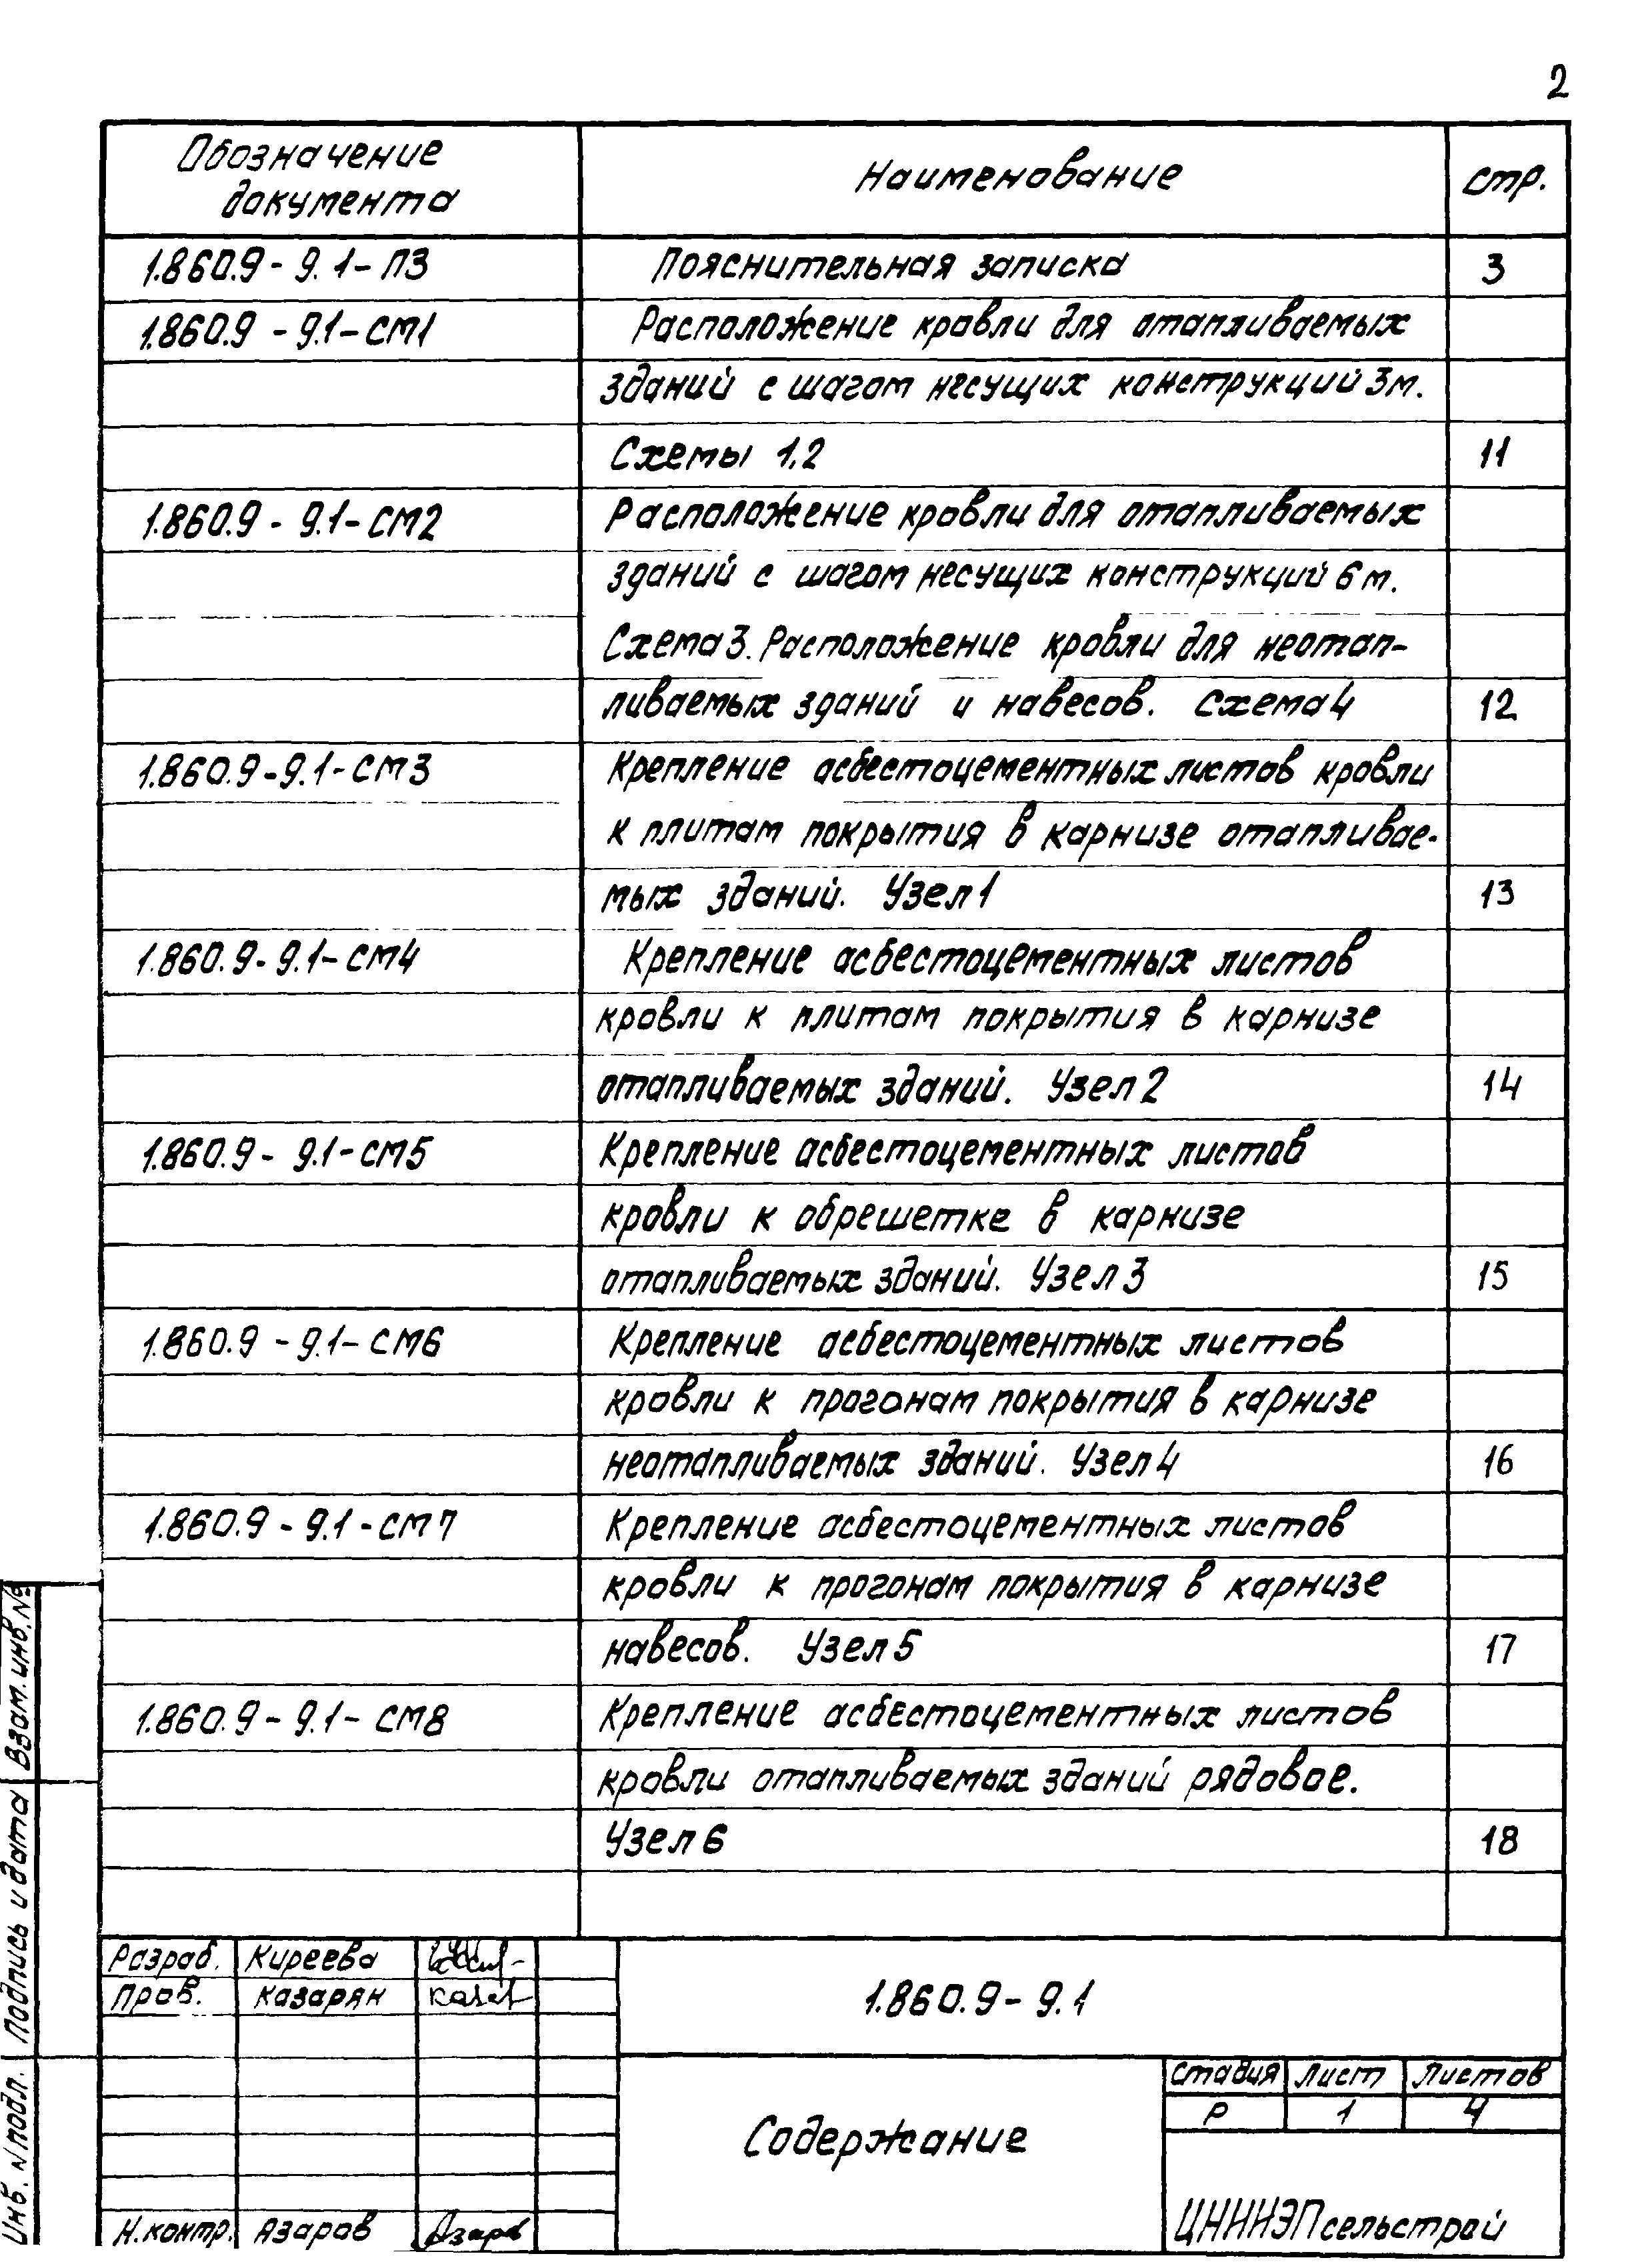 2
Обозначение документа Наименование стр.
1.860.9 - 9.1 - ПЗ Пояснительная записка 3
1.860.9 - 9.1 - СМ1 Расположение кровли для отапливаемых
зданий с шагом несущих конструкций 3м.
Схемы 1,2 11
1.860.9 - 9.1 - СМ2 Расположение кровли для отапливаемых
зданий с шагом несущих конструкций 6м.
Схема 3. Расположение кровли для неотап-
ливаемых зданий и навесов. Схема 4 12
1.860.9 - 9.1 - СМ3 Крепление асбестоцементных листов кровли
к плитам покрытия в карнизе отапливае-
мых зданий. Узел 1 13
1.860.9 - 9.1 - СМ4 Крепление асбестоцементных листов
кровли к плитам покрытия в карнизе
отапливаемых зданий. Узел 2 14
1.860.9 - 9.1 - СМ5 Крепление асбестоцементных листов
кровли к обрешетке в карнизе
отапливаемых зданий. Узел 3 15
1.860.9 - 9.1 - СМ6 Крепление асбестоцементных листов
кровли к прогонам покрытия в карнизе
неотапливаемых зданий. Узел 4 16
1.860.9 - 9.1 - СМ7 Крепление асбестоцементных листов
кровли к прогонам покрытия в карнизе
навесов. Узел 5 17
1.860.9 - 9.1 - СМ8 Крепление асбестоцементных листов
кровли отапливаемых зданий рядовое.
Узел 6 18
Взам. инв. №
Подпись и дата
Инв. N подл.
Разраб. Киреева
Пров. Казарян
Н.контр. Азаров Азаров
1.860.9 - 9.1
Содержание
Стадия Лист Листов
Р 1 4
ЦНИИЭПсельстрой